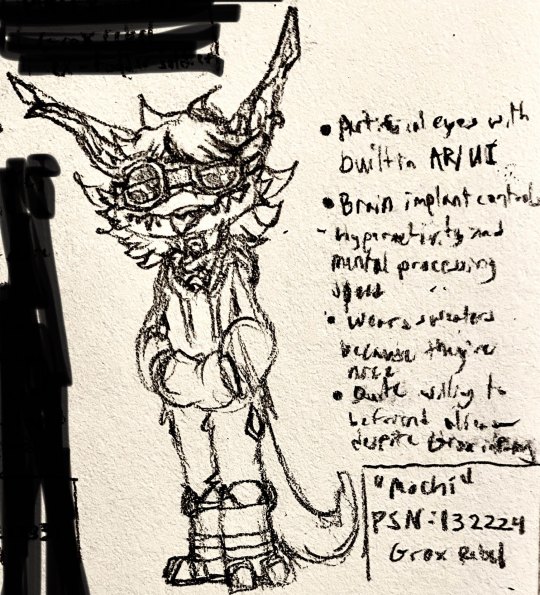 • Artificial eyes with
built in AR/UI
• Brain implant controls
hyperactivity and
mental processing
speed
• wears sweaters
because they're
nice
• Quite willing to
befriend
despite Grox
"Mochi"
PSN:132224
Grox Rebel